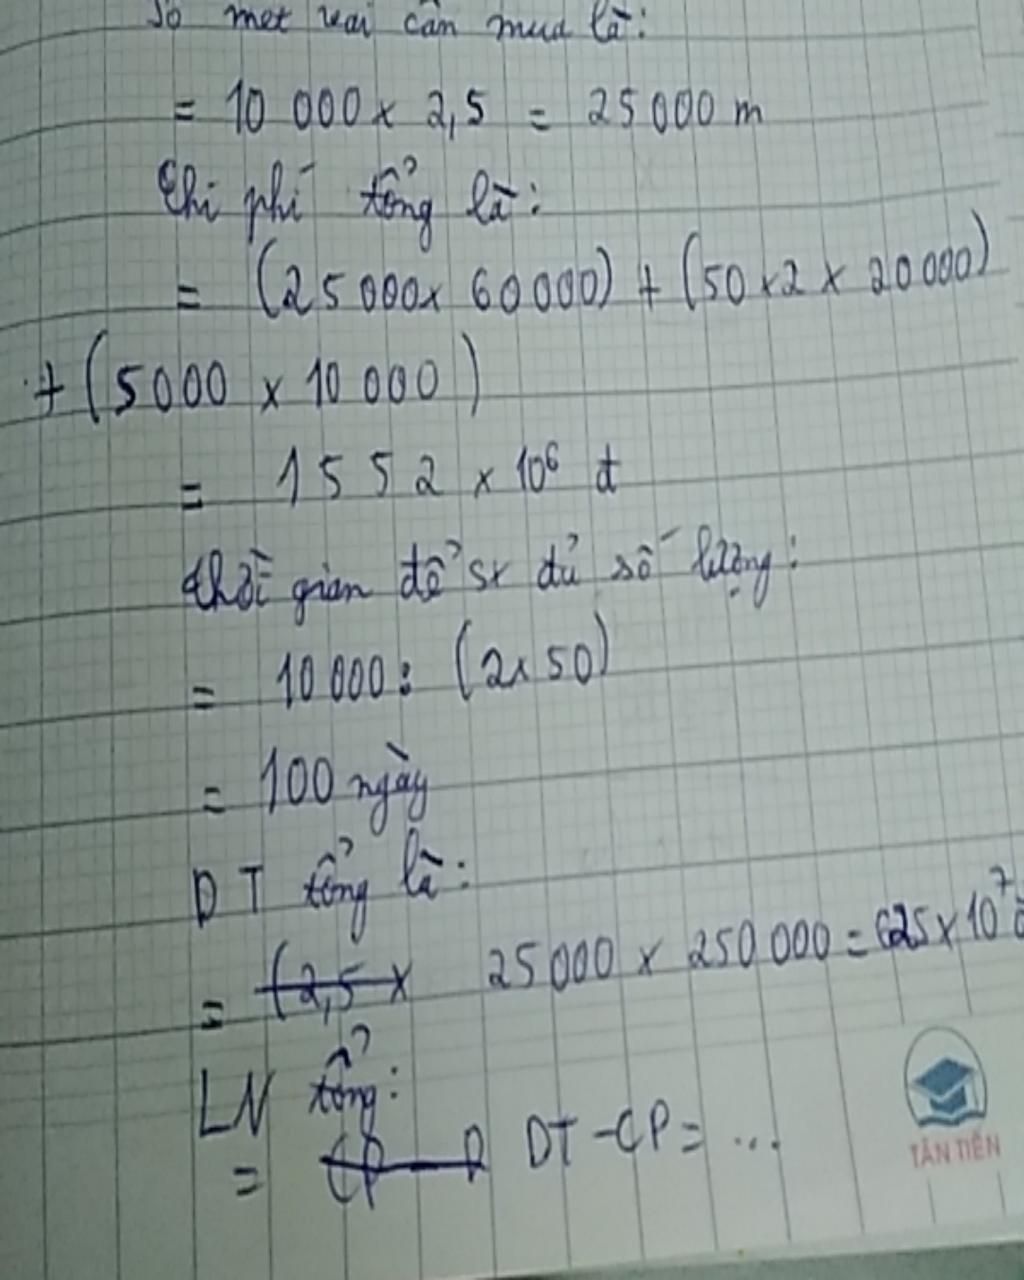 Số mét vải cần mua là:
= 10 000 x 2,5 = 25 000 m
Chi phí tổng là:
= (25 000 x 60 000) + (50 x 2 x 20 000)
+ (5000 x 10 000)
= 1552 x 10⁶ đ
thời gian để sx đủ số lượng:
= 10 000 : (2 x 50)
= 100 ngày
DT tổng là:
= (2,5 x 25 000 x 250 000 = 625 x 10⁷ đ
LN tổng:
= CP DT - CP = ...
TÂN TIẾN